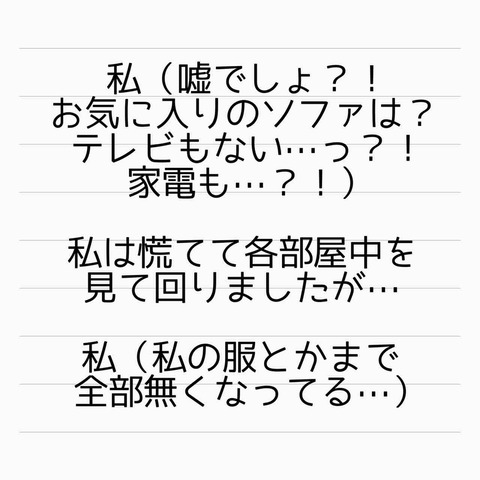 私（嘘でしょ？！
お気に入りのソファは？
テレビもない…っ？！
家電も…？！）
私は慌てて各部屋中を
見て回りましたが…
私（私の服とかまで
全部無くなってる…）